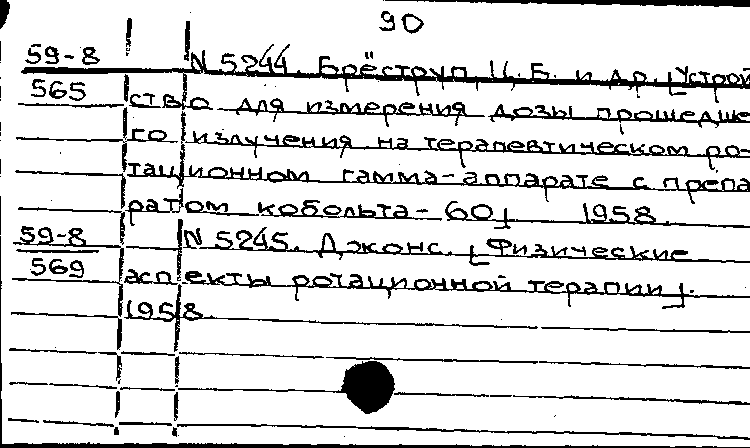 90
59-8 N 5244. Брёструп, Ц. Б. и др. [Устрой
565 ство для измерения дозы прошедше
го излучения на терапевтическом ро-
тационном гамма-аппарате с препа
ратом кобольта-60] 1958.
59-8 N 5245. Джонс. [Физические
569 аспекты ротационной терапии].
1958.